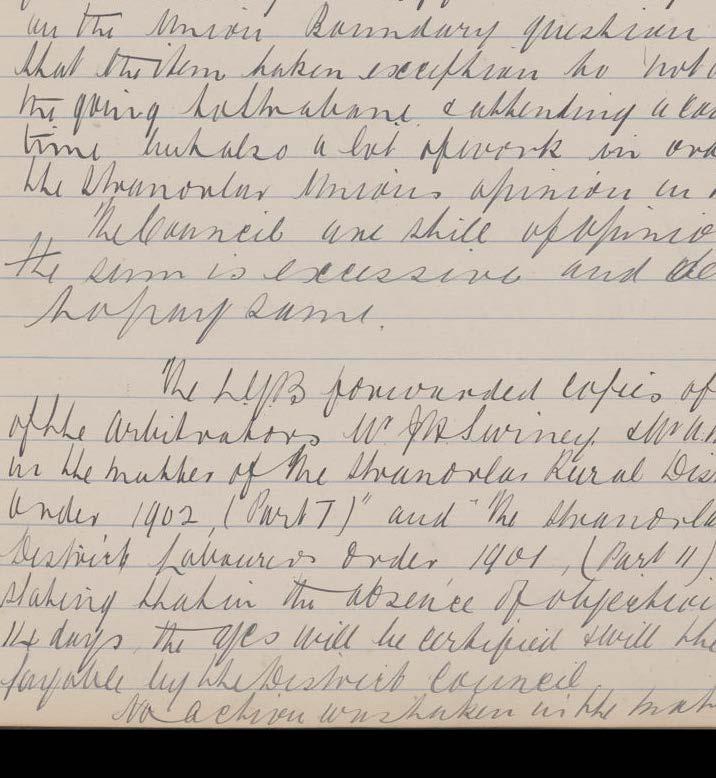 on the Union Boundary question
that the item taken exception to not
the going to Strabane & attending a
time but also a lot of work in
the Stranorlar Unions opinion in
The Council are still of opinio
the sum is excessive and de
to pay same.
The LGB forwarded copies of
of the Arbitrators Mr Swiney & Mr
in the matter of "The Stranorlar Rural Dis
Order 1902, (Part I)" and "The Stranorla
District Labourers Order 1901, (Part II)
stating that in the absence of objectio
14 days, the will be certified & will the
payable by the District Council.
No action was taken in the mat